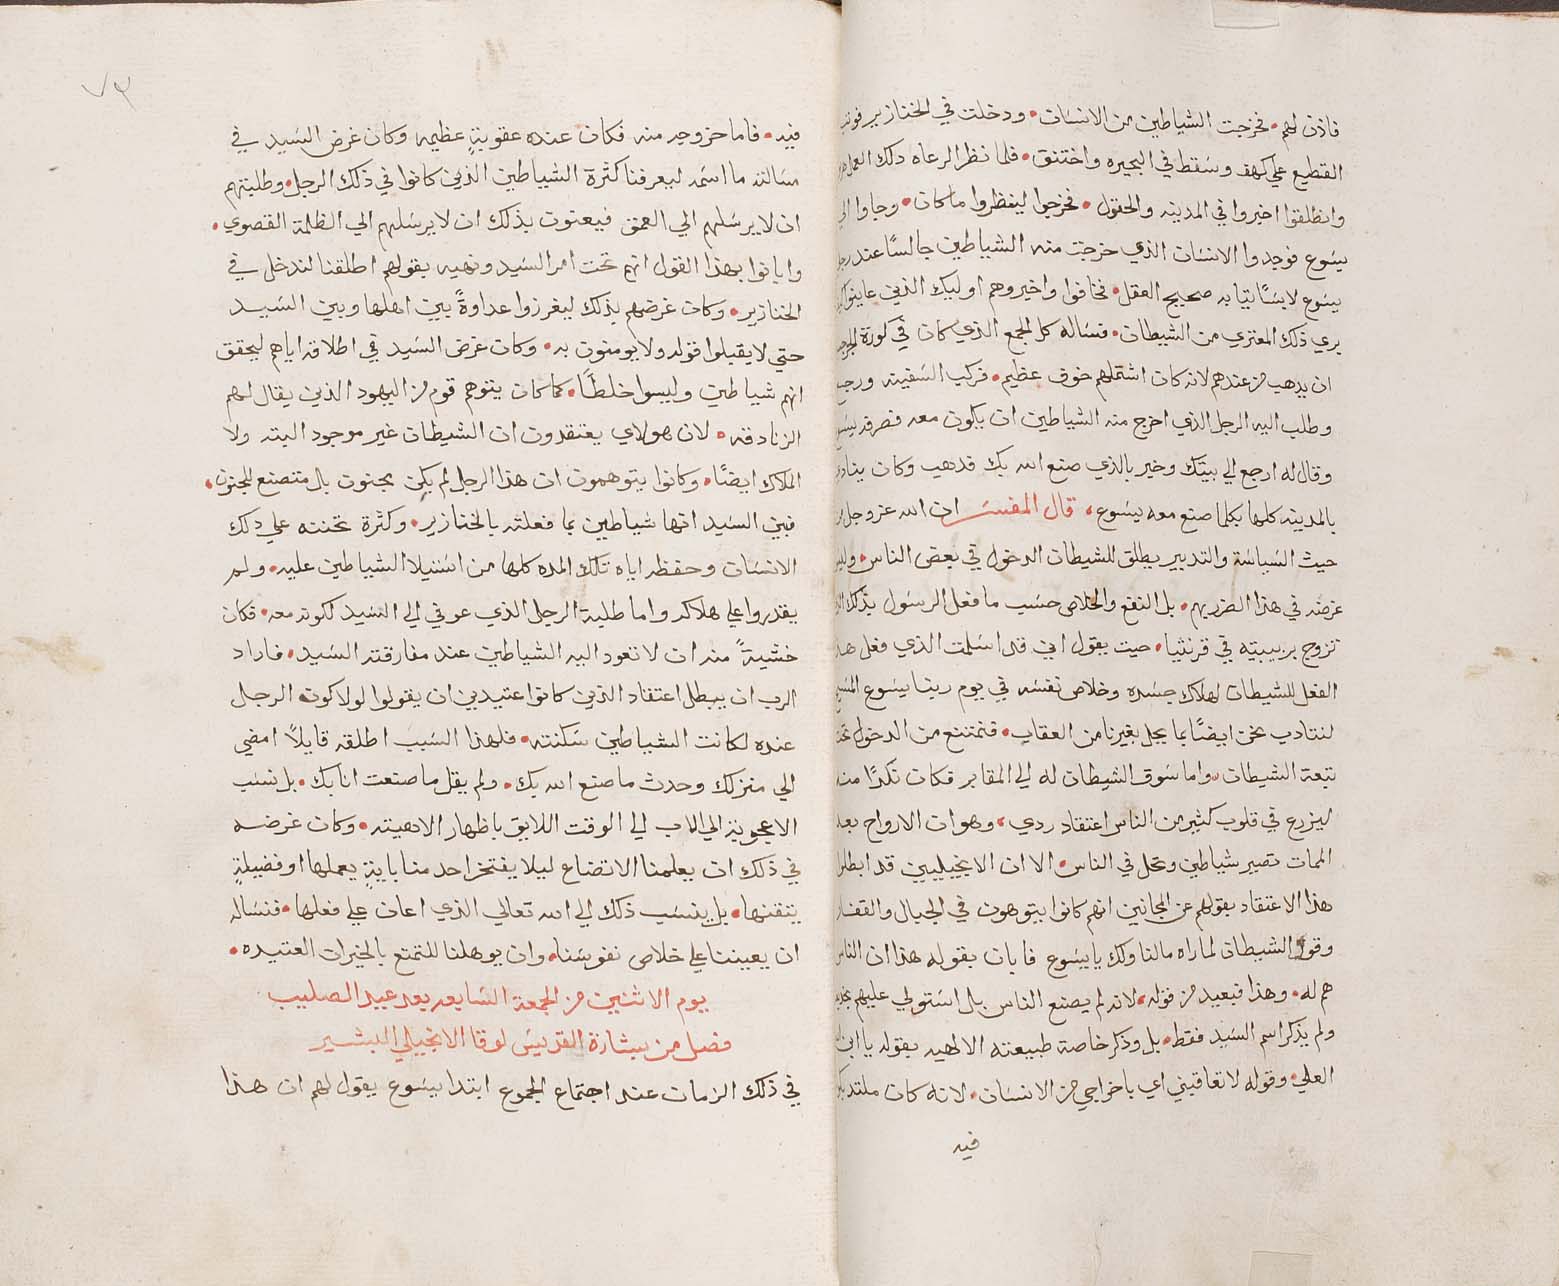 فاذن لهم فخرجت الشياطين من الانسان ودخلت في الخنازير
القطيع علي كهف وسقط في البحيره واختنق فلما نظر الرعاه ذلك العمل
وانطلقوا اخبروا في المدينه والحقول فخرجوا لينظروا ما كان وجاوا الي
يسوع فوجدوا الانسان الذي خرجت منه الشياطين جالسًا عند
يسوع لابسًا ثيابه صحيح العقل فخافوا واخبروهم اوليك الذين عاينوا
بري ذلك المعتري من الشيطان فساله كل الجمع الذي كان في كورة
ان يذهب من عندهم لانه كان اشتملهم خوف عظيم فركب السفينه ورجع
وطلب اليه الرجل الذي اخرج منه الشياطين ان يكون معه فصرفه يسوع
وقال له ارجع الي بيتك وخبر بالذي صنع الله بك فذهب وكان ينادي
بالمدينه كلها بكلما صنع معه يسوع قال المفسر ان الله عز وجل
حيث السياسة والتدبير يطلق للشيطان الدخول في بعض الناس وليس
غرضه في هذا الضرر بهم بل النفع والخلاص حسب ما فعل الرسول بذلك
تزوج بربيبته في قرنثيا حيث يقول اني قد اسلمت الذي فعل
الفعل للشيطان لهلاك جسده وخلاص نفسه في يوم ربنا يسوع المسيح
لنتادب نحن ايضًا بما يحل بغيرنا من العقاب فنمتنع من الدخول تحت
تبعة الشيطان واما سوق الشيطان له الي المقابر فكان نكدًا منه
ليزرع في قلوب كثير من الناس اعتقاد ردي وهو ان الارواح بعد
الممات تصير شياطين وتحل في الناس الا ان الانجيليين قد ابطلوا
هذا الاعتقاد بقولهم عن المجانين انهم كانوا يتوهون في الجبال والقفار
وقول الشيطان لما راه مالنا ولك يا يسوع فابان بقوله هذا ان الناس
هم له وهذا فبعيد من قوله لانه لم يصنع الناس بل استولي عليهم
ولم يذكر اسم السيد فقط بل وذكر خاصة طبيعته الالهيه بقوله يا ابن
العلي وقوله لا تعاقبني اي باخراجي من الانسان لانه كان ملتد
فيه
٧٣
فيه فاما خروجه منه فكان عنده عقوبةٍ عظيمه وكان غرض السيد في
مسالته ما اسمه ليعرفنا كثرة الشياطين الذين كانوا في ذلك الرجل وطلبتهم
ان لا يرسلهم الي العمق فيعنون بذلك ان لا يرسلهم الي الظلمة القصوي
وابانوا بهذا القول انهم تحت امر السيد ونهيه بقولهم اطلقنا لندخل في
الخنازير وكان غرضهم بذلك ليغرزوا عداوةً بين اهلها وبين السيد
حتي لا يقبلوا قوله ولا يومنون به وكان غرض السيد في اطلاقه اياهم ليحقق
انهم شياطين وليسوا خلطًا كما كان يتوهم قوم من اليهود الذين يقال لهم
الزنادقه لان هولاي يعتقدون ان الشيطان غير موجود البته ولا
الملاك ايضًا وكانوا يتوهمون ان هذا الرجل لم يكن بمجنون بل متصنع للجنون
فبين السيد انها شياطين بما فعلته بالخنازير وكثرة تحننه علي ذلك
الانسان وحفظه اياه تلك المده كلها من استيلا الشياطين عليه ولم
يقدروا علي هلاكه واما طلبة الرجل الذي عوفي الي السيد لكونه معه فكان
خشيةً منه ان لا تعود اليه الشياطين عند مفارقته السيد فاراد
الرب ان يبطل اعتقاد الذين كانوا عتيدين ان يقولوا لولا كون الرجل
عنده لكانت الشياطين سكنته فلهذا السبب اطلقه قايلاً امضي
الي منزلك وحدث ما صنع الله بك ولم يقل ما صنعت انا بك بل نسب
الاعجوبة الي الاب الي الوقت اللايق باظهار الاهيته وكان غرضه
في ذلك ان يعلمنا الاتضاع ليلا يفتخر احد منا بايةٍ يعملها او فضيلةٍ
يتقنها بل ينسب ذلك الي الله تعالي الذي اعان علي فعلها فنساله
ان يعيننا علي خلاص نفوسنا وان يوهلنا للتمتع بالخيرات العتيده
يوم الاثنين من الجمعة السابعه بعد عيد الصليب
فصل من بشارة القديس لوقا الانجيلي البشير
في ذلك الزمان عند اجتماع الجموع ابتدا يسوع يقول لهم ان هذا